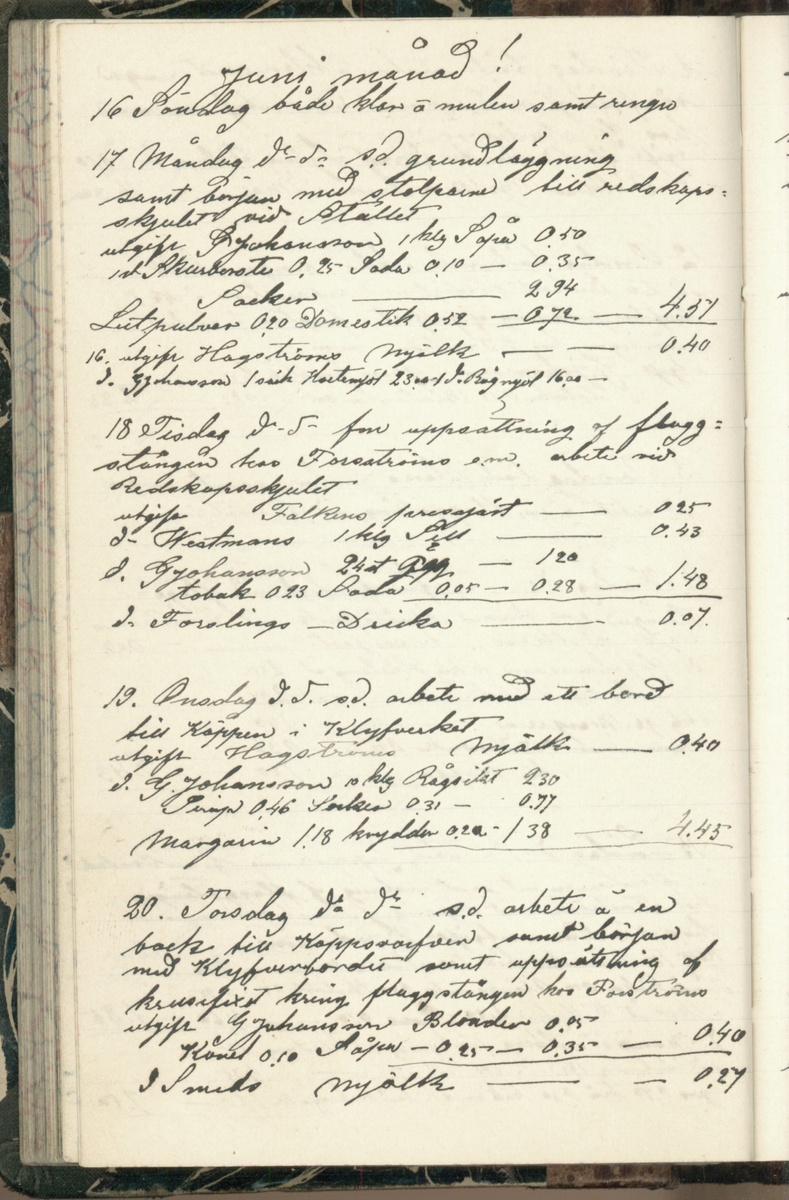 Juni månad!
16 Söndag både klar å mulen samt rengn
17 Måndag d-o s.d. grundläggning
samt början med stolparne till redskaps=
skjulet vid Stallet
utgift G Johansson 1 klg Såpa 0.50
1 st Skurborste 0.25 Soda 0.10 — 0.35
Socker — 2 94
Lutpulver 0.20 Domestik 0.52 — 0.72 — 4.51
16. utgift Hagströms Mjölk — — 0.40
d. G Johansson 1 säck Hvetemjöl 23.00 1 d. Rågmjöl 16.00 —
18 Tisdag d-o- fm uppsättning af flagg=
stången hos Forsströms e.m. arbete vid
Redskapsskjulet
utgift Falkens pressjäst — 0 25
d- Westmans 1 klg Sill — 0.43
d. G Johansson 24 st Ägg — 1 20
tobak 0.23 Soda 0.05 — 0.28 — 1.48
d- Forslings — Dricka — 0.07.
19. Onsdag d.o. s.d. arbete med ett bord
till Käppen i Klyfverket
utgift Hagströms Mjölk — 0.40
d. G. Johansson 10 klg Rågsikt 2 30
Sirap 0.46 Socker 0.31 — 0.77
Margarin 1.18 kryddor 0.20 - 1 38 — 4.45
20. Torsdag d- d- s.d. arbete å en
bock till Käppsvarfven samt början
med Klyfverbordet samt uppsättning af
krusifixet kring flaggstången hos Forströms
utgift G Johansson Blonder 0.05
Kanel 0.10 Såpa — 0.25 — 0.35 — 0.40
d Smeds Mjölk — — 0.27